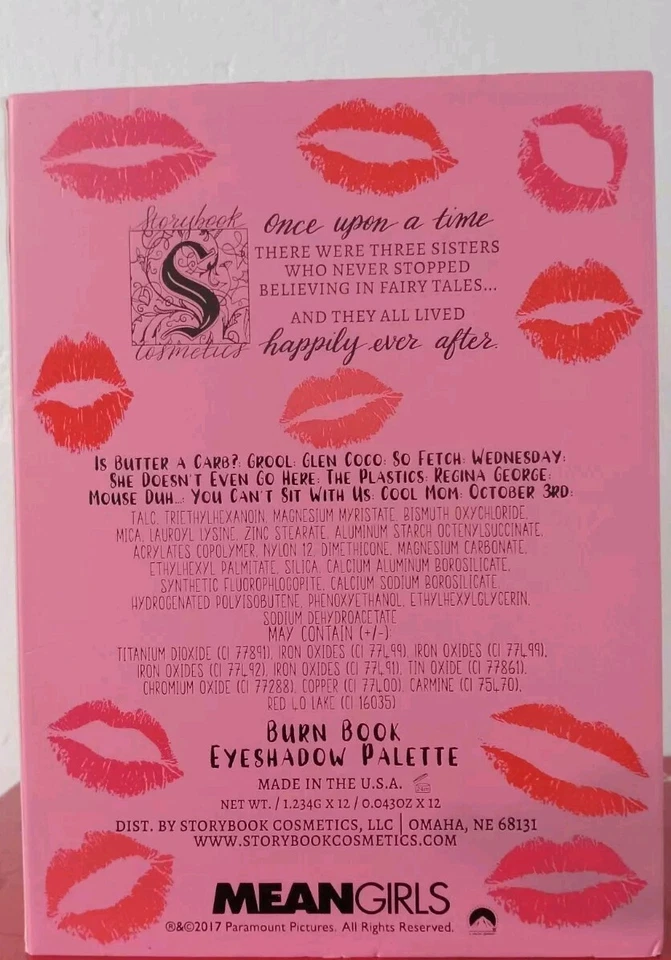 Storybook
S
Cosmetics
Once upon a time
THERE WERE THREE SISTERS
WHO NEVER STOPPED
BELIEVING IN FAIRY TALES...
AND THEY ALL LIVED
happily ever after.
IS BUTTER A CARB?: GROOL: GLEN COCO: SO FETCH: WEDNESDAY:
SHE DOESN'T EVEN GO HERE: THE PLASTICS: REGINA GEORGE:
MOUSE DUH...: YOU CAN'T SIT WITH US: COOL MOM: OCTOBER 3RD:
TALC, TRIETHYLHEXANOIN, MAGNESIUM MYRISTATE, BISMUTH OXYCHLORIDE,
MICA, LAUROYL LYSINE, ZINC STEARATE, ALUMINUM STARCH OCTENYLSUCCINATE,
ACRYLATES COPOLYMER, NYLON 12, DIMETHICONE, MAGNESIUM CARBONATE,
ETHYLHEXYL PALMITATE, SILICA, CALCIUM ALUMINUM BOROSILICATE,
SYNTHETIC FLUORPHLOGOPITE, CALCIUM SODIUM BOROSILICATE,
HYDROGENATED POLYISOBUTENE, PHENOXYETHANOL, ETHYLHEXYLGLYCERIN,
SODIUM DEHYDROACETATE
MAY CONTAIN (+/-):
TITANIUM DIOXIDE (CI 77891), IRON OXIDES (CI 77499), IRON OXIDES (CI 77499),
IRON OXIDES (CI 77492), IRON OXIDES (CI 77491), TIN OXIDE (CI 77861),
CHROMIUM OXIDE (CI 77288), COPPER (CI 77400), CARMINE (CI 75470),
RED 40 LAKE (CI 16035)
BURN BOOK
EYESHADOW PALETTE
MADE IN THE U.S.A.
NET WT. / 1.234G X 12 / 0.043OZ X 12
DIST. BY STORYBOOK COSMETICS, LLC | OMAHA, NE 68131
WWW.STORYBOOKCOSMETICS.COM
MEAN GIRLS
®&©2017 Paramount Pictures. All Rights Reserved.